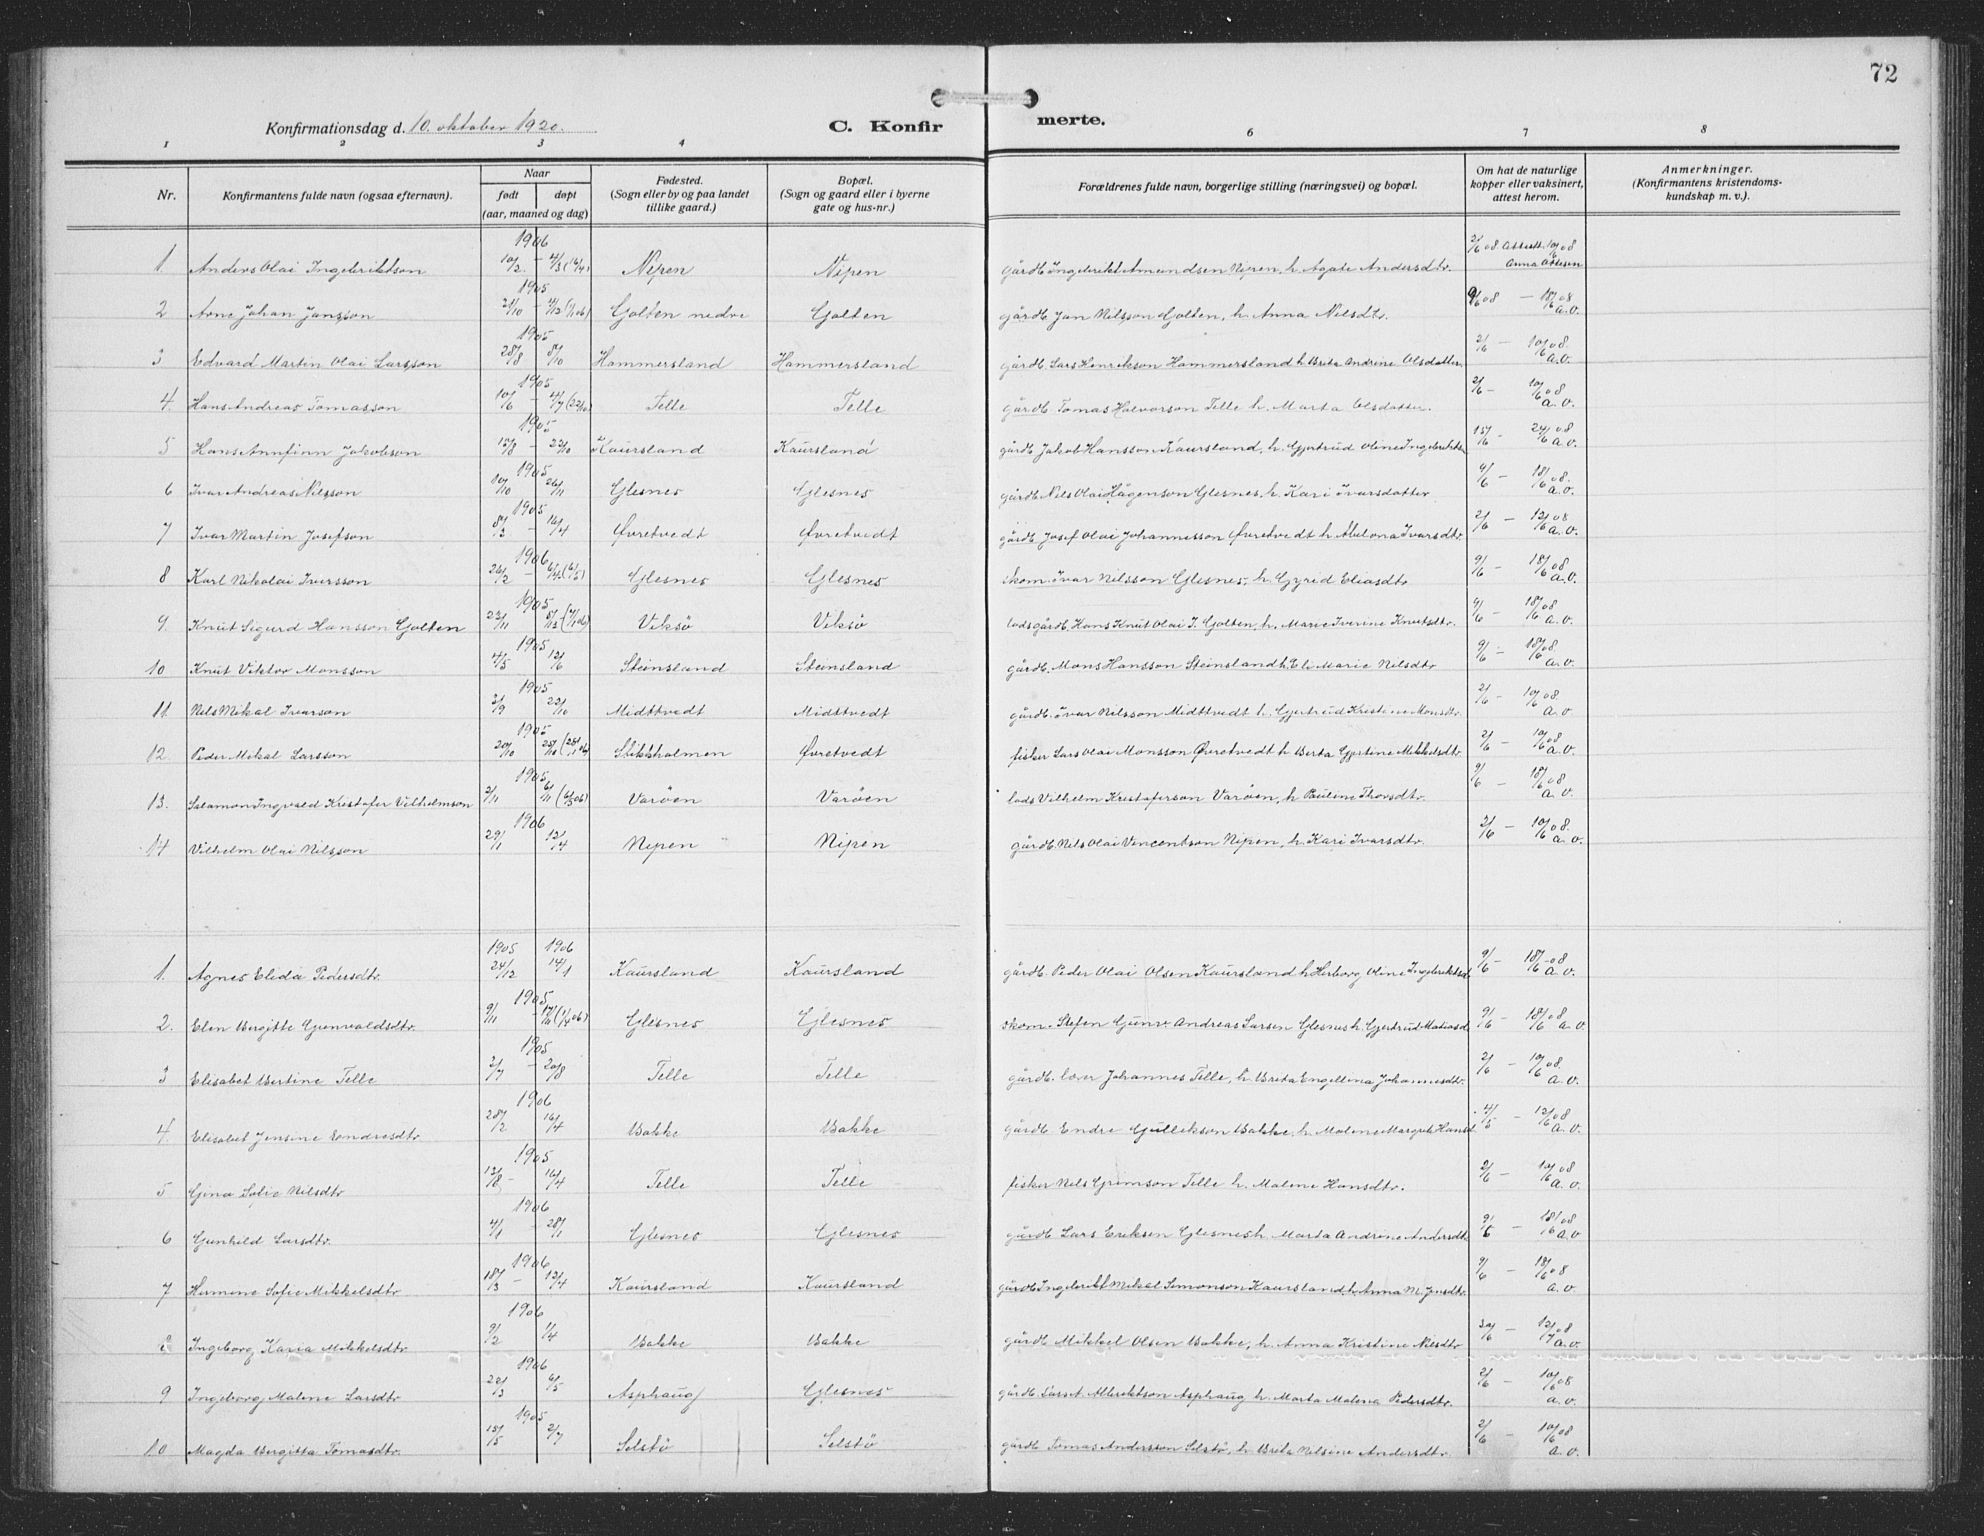 72
Konfirmationsdag d. 10. oktober 1920.
C. Konfir merte.
1 2 3 4 6 7 8
Nr. Konfirmantens fulde navn (ogsaa efternavn). Naar født døpt (aar, maaned og dag) Fødested. (Sogn eller by og paa landet tillike gaard.) Bopæl. (Sogn og gaard eller i byerne gate og hus-nr.) Forældrenes fulde navn, borgerlige stilling (næringsvei) og bopæl. Om hat de naturlige kopper eller vaksinert, attest herom. Anmerkninger. (Konfirmantens kristendomskundskap m. v.).
1906
1. Anders Olai Ingebriktson 10/2 - 4/3 (16/4) Nipen Nipen gårdb. Ingebrikt Amundsen Nipen, h. Agate Andersdtr. 2/6 08 Attest. 10/6 08 Anna Ottesen
1905
2 Arne Johan Jansson 21/10 - 4/12 (7/1 06) Golten nedre Golten gårdb. Jan Nilsson Golten, h. Anna Nilsdtr. 9/6 08 - 18/6 08 a.o.
1905
3 Edvard Martin Olai Larsson 28/8 8/10 Hammersland Hammersland gårdb. Lars Henrikson Hammersland h. Brita Andrine Olsdatter 2/6 - 10/6 08 a.o.
1905
4. Hans Andreas Tomasson 10/6 - 4/7 (22/10) Telle Telle gårdb. Tomas Halvorson Telle h. Marta Olsdatter. 2/6 - 10/6 08 a.o.
1905
5 Hans Annfinn Jakobson 15/8 - 22/10 Kaursland Kaursland gårdb. Jakob Hansson Kaursland, h. Gjertrud Oline Ingebriktsdtr 15/6 - 24/6 08 a.o.
1905
6 Ivar Andreas Nilsson 10/10 26/11 Glesnes Glesnes gårdb. Nils Olai Hågenson Glesnes, h. Kari Ivarsdatter 9/6 - 18/6 08. a.o.
1905
7 Ivar Martin Josefson 8/3 - 16/4 Øvretvedt Øvretvedt gårdb. Josef Olai Johannesson Øvretvedt h. Abelona Ivarsdtr. 2/6 - 12/6 08 a.o.
1906
8 Karl Nikolai Iversson 26/2 - 6/4 (6/5) Glesnes Glesnes Skom. Ivar Nilsson Glesnes, h. Gyrid Eliasdtr 9/6 - 18/6 08 a.o.
1905
9. Knut Sigurd Hansson Golten 23/11 8/12 (7/1 06) Viksö Viksö lods gårdb. Hans Knut Olai I. Golten, h. Marie Iverine Knutsdtr. 9/6 - 18/6 08 a.o.
1905
10 Knut Viktor Monsson 4/5 12/6 Steinsland Steinsland gårdb. Mons Hansson Steinsland h. Eli Marie Nilsdtr 9/6 - 18/6 08 a.o.
1905
11. Nils Mikal Ivarson 3/9 22/10 Midttvedt Midttvedt gårdb. Ivar Nilsson Midttvedt h. Gjertrud Kristine Monsdtr. 2/6 - 10/6 08 a.o.
1905
12. Peder Mikal Larsson 20/10 Øvretvedt fisker Lars Olai Monsson Øvretvedt h. Berta Gjertine Mikkelsdtr 2/6 - 10/6 08 a.o.
1905
13. Salamon Ingvald Kristofer Vilhelmson 2/11 6/11 (6/5 06) Varöen Varöen lods Vilhelm Kristoferson Varöen, h. Pauline Thorsdtr. 9/6 - 18/6 08 a.o.
1906
14 Vilhelm Olai Nilsson 29/1 12/4 Nipen Nipen gårdb. Nils Olai Vincentson Nipen, h. Kari Ivarsdtr. 2/6 - 10/6 08. a.o.
1905 1906
1. Agnes Elida Pedersdtr. 24/12 14/1 Kaursland Kaursland gårdb. Peder Olai Olsen Kaursland h. Herborg Oline Ingebriktsd. 9/6 - 18/6 08 a.o.
1905
2. Elen Bergitte Gunvaldsdtr. 9/11 - (1/4 06) Glesnes Glesnes skom. Stefen Gunv. Andreas Larsen Glesnes h. Gjertrud Matiasd. 9/6 - 18/6 08 a.o.
1905
3 Elisabet Bertine Telle 2/7 - 20/8 Telle Telle gårdb. lærer Johannes Telle, h. Brita Engelina Johannesdtr. 2/6 - 10/6 08 a.o.
1906
4. Elisabet Jensine Endresdtr 28/2 16/4 Bakke Bakke gårdb. Endre Gullikson Bakke, h. Malene Margrete Hansd. 4/5 - 12/6 08 a.o.
1905
5 Gina Sofie Nilsdtr 13/8 - 16/4 Telle Telle fisker Nils Grimson Telle h. Malene Hansdtr. 2/6 - 10/6 08 a.o.
1906
6 Gunhild Larsdtr. 4/1 - 28/1 Glesnes Glesnes gårdb. Lars Eriksen Glesnes h. Marta Andrine Andersdtr. 9/6 - 18/6 08 a.o
1906
7 Hermine Sofie Mikkelsdtr 18/3 - 12/4 Kaursland Kaursland gårdb. Ingebrikt Mikal Simonson Kaursland, h. Anna M. Jensdtr. 9/6 - 18/6 08 a.o.
1906
8 Ingeborg Karia Mikkelsdtr 9/2 1/4 Bakke Bakke gårdb. Mikkel Olsen Bakke, h. Anna Kristine Nilsdtr 30/6 - 12/7 08 a.o.
1906
9 Ingeborg Malene Larsdtr 22/3 6/5 Asphaug Glesnes gårdb. Lars A. Albriktson Asphaug h. Marta Malena Pedersdtr. 2/6 - 10/6 08 a.o.
1905
10 Magda Bergitta Tomasdtr. 15/5 2/7 Selstö Selstö gårdb. Tomas Andersson Selstö, h. Brita Nilsine Andersdtr. 2/6 - 10/6 08 a.o.